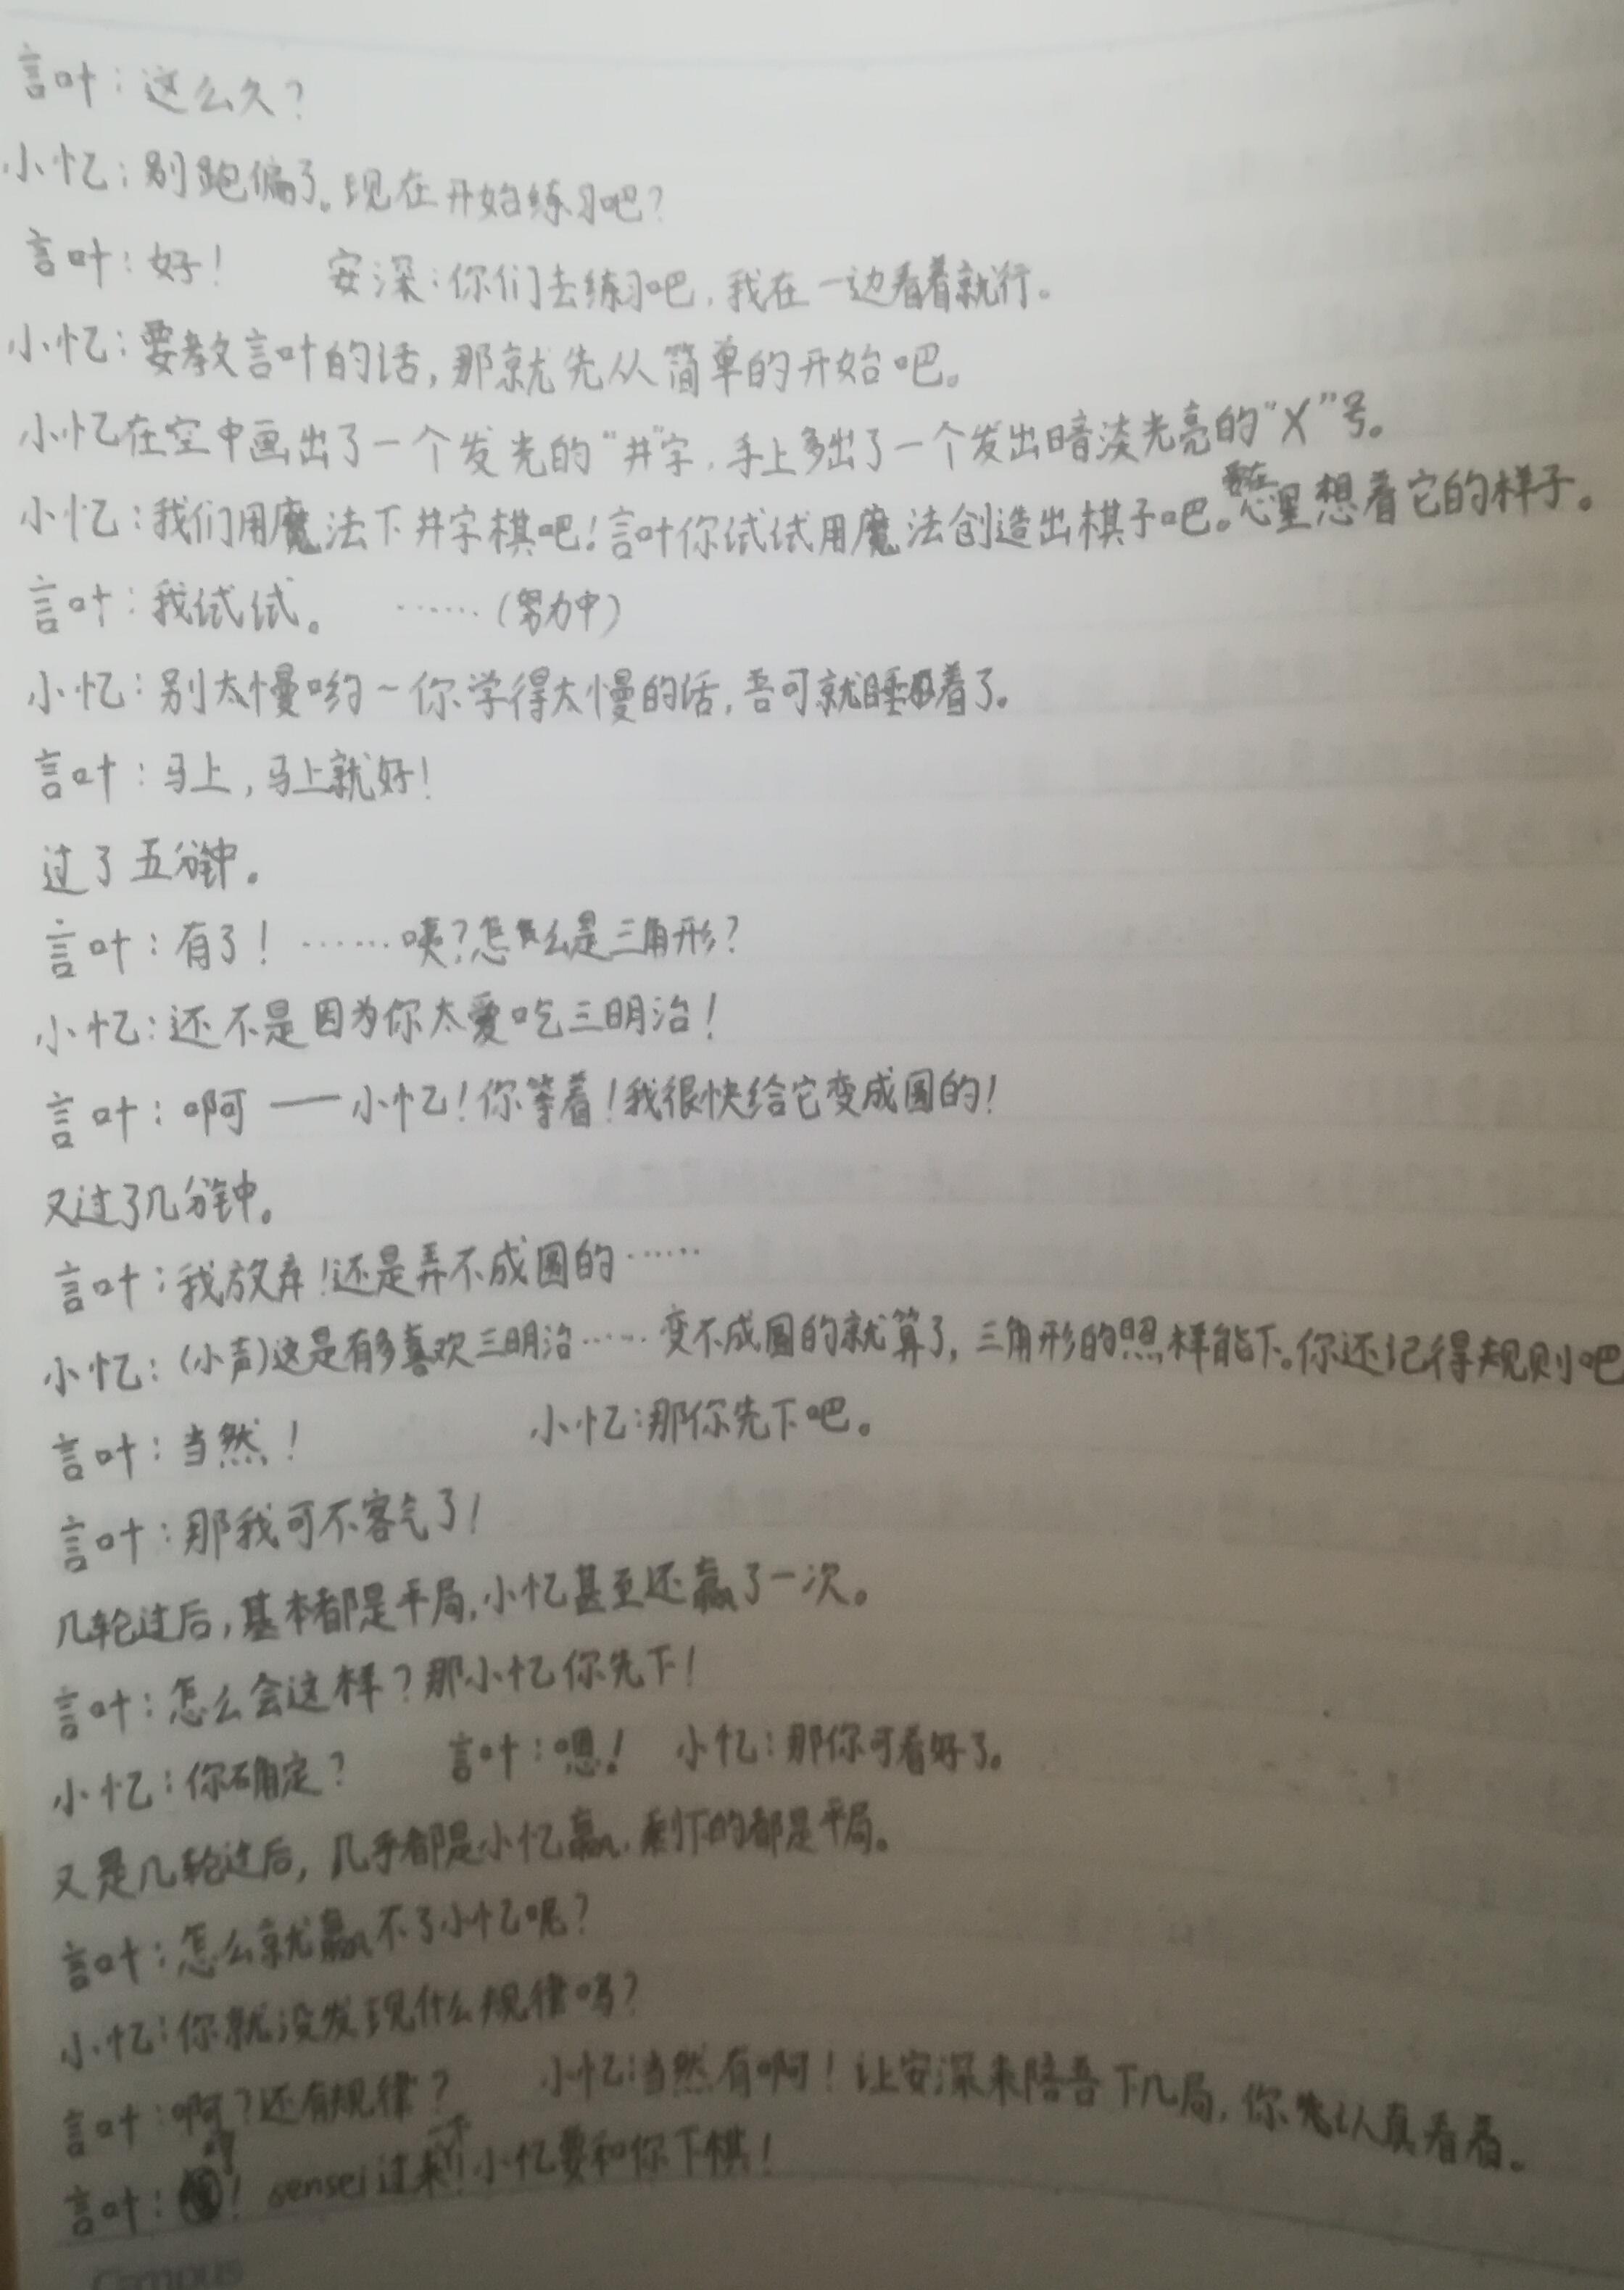 言叶：这么久？
小忆：别跑偏了。现在开始练习吧？
言叶：好！ 安深：你们去练习吧，我在一边看着就行。
小忆：要教言叶的话，那就先从简单的开始吧。
小忆在空中画出了一个发光的“井”字，手上多出了一个发出暗淡光亮的“X”号。
小忆：我们用魔法下井字棋吧！言叶你试试用魔法创造出棋子吧。要在心里想着它的样子。
言叶：我试试。 ……（努力中）
小忆：别太慢哟～你学得太慢的话，吾可就睡着了。
言叶：马上，马上就好！
过了五分钟。
言叶：有了！……咦？怎么是三角形？
小忆：还不是因为你太爱吃三明治！
言叶：啊——小忆！你等着！我很快给它变成圆的！
又过了几分钟。
言叶：我放弃！还是弄不成圆的……
小忆：（小声）这是有多喜欢三明治……变不成圆的就算了，三角形的照样能下。你还记得规则吧
言叶：当然！ 小忆：那你先下吧。
言叶：那我可不客气了！
几轮过后，基本都是平局，小忆甚至还赢了一次。
言叶：怎么会这样？那小忆你先下！
小忆：你确定？ 言叶：嗯！ 小忆：那你可看好了。
又是几轮过后，几乎都是小忆赢，剩下的都是平局。
言叶：怎么就赢不了小忆呢？
小忆：你就没发现什么规律吗？
言叶：啊？还有规律？ 小忆：当然有啊！让安深来陪吾下几局，你先认真看着。
言叶：！sensei过来！小忆要和你下棋！
Campus